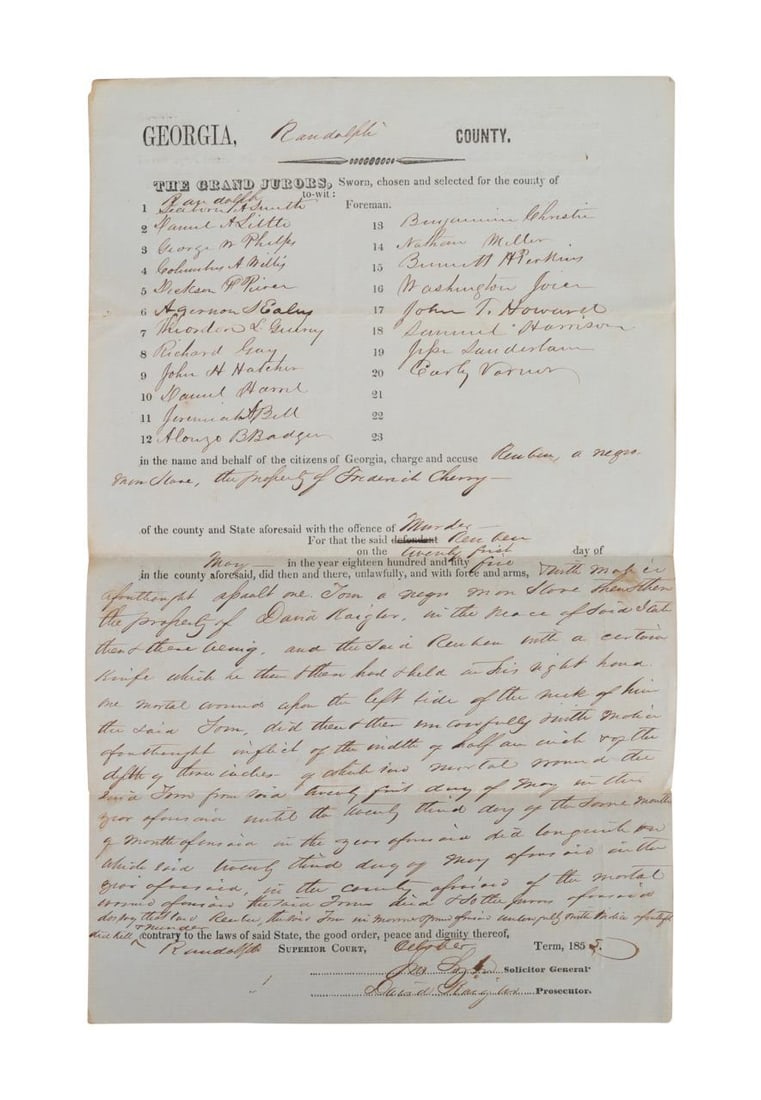 GEORGIA, Randolph COUNTY.
THE GRAND JURORS, Sworn, chosen and selected for the county of
Randolph to-wit:
1 A Smith Foreman.
2 Daniel A Little
3 George W Phelps
4 Columbus A Willis
5 Dickson P
6 Algernon S Ealey
7 L
8 Richard Gay
9 John H Hatcher
10 Daniel Harrel
11 Jeremiah Bell
12 Alonzo B Badger
13 Benjamin Christie
14 Nathan Miller
15 Burnett H Perkins
16 Washington Joiner
17 John T. Howard
18 Samuel Harrison
19 Sanderlain
20 Early Varner
21
22
23
in the name and behalf of the citizens of Georgia, charge and accuse Reuben, a negro
man Slave, the property of Frederick Cherry
of the county and State aforesaid with the offence of Murder
For that the said defendant Reuben
on the twenty first day of
May in the year eighteen hundred and fifty five
in the county aforesaid, did then and there, unlawfully, and with force and arms, & with malice
aforethought assault one Tom a negro man Slave then & there
the property of David Kaigler, in the peace of Said State
then & there being, and the Said Reuben with a certain
Knife which he then & there had & held in his right hand
one mortal wound upon the left side of the neck of him
the said Tom, did then & there unlawfully & with malice
aforethought inflict of the width of half an inch & of the
depth of three inches of which said mortal wound the
said Tom from said twenty first day of May in the
year aforesaid until the twenty third day of the Same month
of month aforesaid in the year aforesaid did languish & on
which said twenty third day of May aforesaid in the
year aforesaid, in the county aforesaid of the mortal
wound aforesaid the said Tom died & so the jurors aforesaid
do say that said Reuben, the said Tom in manner & form aforesaid unlawfully & with malice aforethought
did kill & murder
contrary to the laws of said State, the good order, peace and dignity thereof,
Randolph SUPERIOR COURT, October Term, 1855
Solicitor General
David Kaigler Prosecutor.